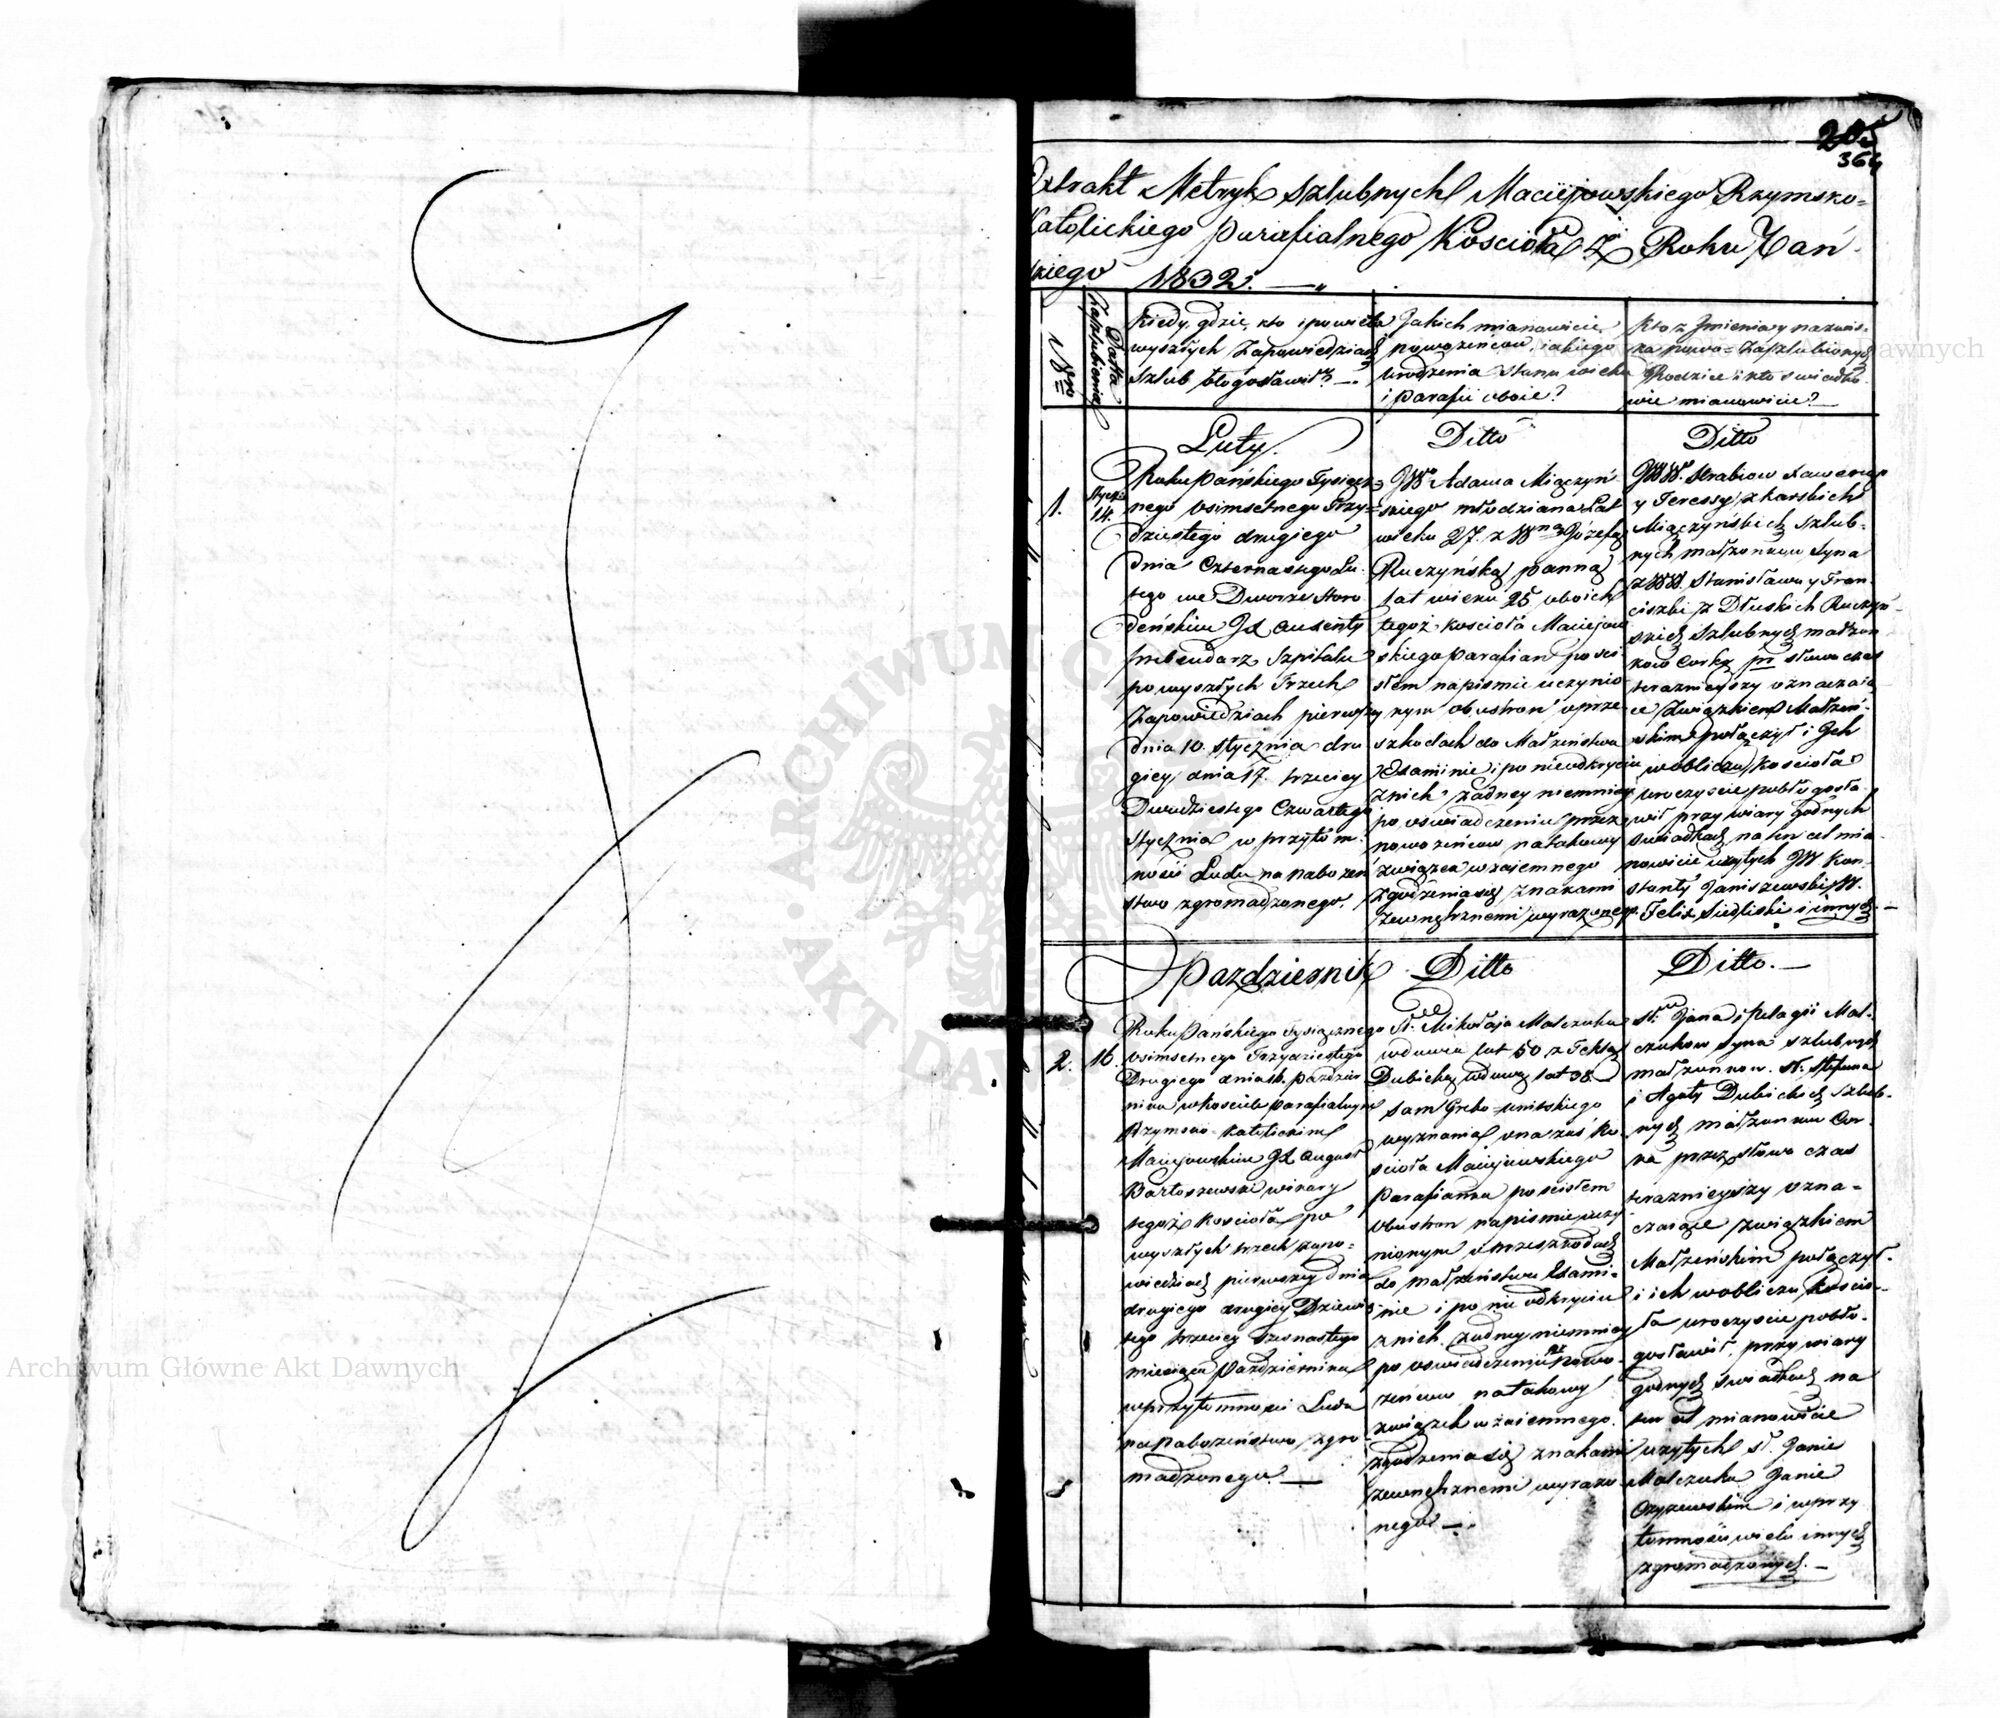 205
364
Extrakt z Metryk Szlubnych Maciejowskiego Rzymsko-
Katolickiego Parafialnego Kosciola Roku Pań
skiego 1832.
Nro
Datta Zaszlubienia
Kiedy, gdzie, kto i powielu
wyszłych Zapowiedziach
Szlub błogosławił?
Jakich mianowicie
nowożeńców, iakiego
urodzenia stanu wieku
i Parafii oboie?
Kto z Jmienia y nazwis-
ka nowo-Zaszlubionych
Rodzice i kto swiadko-
wie mianowicie?
Luty.
Ditto
Ditto
1.
14.
Roku Pańskiego Tysiącz-
nego osimsetnego Trzy-
dziestego drugiego
dnia Czternastego Lu-
tego we Dworze Horo
deńskim
prebendarz Szpitalu
po wyszłych Trzech
Zapowiedziach pierwszy
dnia 10. stycznia dru
giey dnia 17. trzeciey
Dwudziestego Czwartego
Stycznia w przytom-
ności Ludu na nabożeń
stwo zgromadzonego.
JW Adama Miączyń-
skiego młodziana Lat
wieku 27. z Wną Józefą
Ruczyńską panną
lat wieku 25 oboich
tegoż kościoła Maciejow
skiego parafian po ści-
słem na piśmie uczynio
nym obustron o prze-
szkodach do Małżeństwa
Examinie i po nieodkryciu
z nich żadney niemniey
po oświadczeniu przez
nowożeńców na takowy
związek wzajemnego
zgodzenia się znakami
zewnętrznemi wyrażonego.
JWW. Hrabiow Xawerego
y Teressy z Karskich
Miączyńskich szlub-
nych małżonkow Syna
z WW. Stanisława y Fran-
ciszki z Dłuskich Ruczyń-
skich Szlubnych małżon
kow Corką pr słowa czas
teraznieyszy oznaczaią
ce Związkiem Małżeń-
skim połączył i Jch
w obliczu Kościoła
uroczyscie pobłogosła-
wił przy wiary godnych
świadkach na ten cel mia-
nowicie użytych JW Kon-
stanty Janiszewski W.
Felix Siedliski i innych.
Pazdziernik
Ditto
Ditto.
2.
16.
Roku Pańskiego Tysiącznego
osimsetnego Trzydziestego
Drugiego dnia 16. Paździer
nika w kościele parafialnym
Rzymsko-Katolickim
Maciejowskim JX August
Bartoszewski wikary
tegoż Kościoła po
wyszłych trzech zapo-
wiedziach pierwszy dnia
drugiego drugiey Dziewią
tego trzeciey szesnastego
miesiąca Października
w przytomności Ludu
na Nabożeństwo zgro-
madzonego.
Mikołaja Malczuka
wdowca lat 50 z Teklą
Dubicką wdową lat 38
sam Greko-unitskiego
wyznania ona zaś Ko-
ścioła Maciejowskiego
Parafianka po ścisłem
obustron na piśmie uczy
nionym o przeszkodach
do małżeństwa Exami-
nie i po nie odkryciu
z nich żadney niemniey
po oświadczeniu pr nowo-
żeńców na takowy
związek wzaiemnego
zgodzenia się znakami
zewnętrznemi wyrażo
nego.
Jana i Pelagii Mal-
czukow syna szlubnych
małżonkow. Stefana
i Agaty Dubickich szlub-
nych małżonkow Cor-
ką przez słowa czas
teraznieyszy ozna-
czaiące związkiem
Małżeńskim połączył.
i ich w obliczu Kościo-
ła uroczyscie pobło-
gosławił, przy wiary
godnych świadkach na
ten cel mianowicie
użytych Janie
Malczuku Janie
Czyzewskim i w przy
tomności wielu innych
zgromadzonych.
ARCHIWUM GŁÓWNE AKT DAWNYCH
Archiwum Główne Akt Dawnych
Archiwum Główne Akt Dawnych